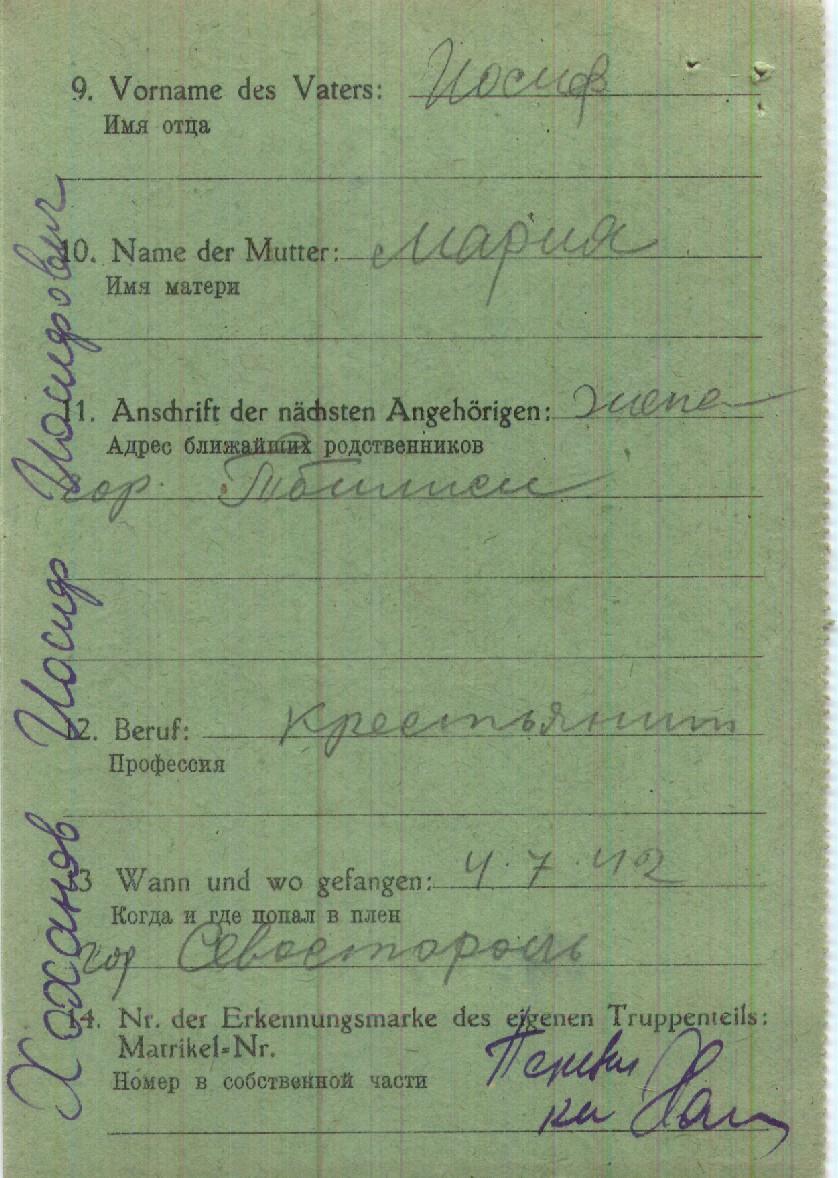 9. Vorname des Vaters: Иосиф
Имя отца
10. Name der Mutter: Мария
Имя матери
11. Anschrift der nächsten Angehörigen: жена
Адрес ближайших родственников
гор. Тбилиси
12. Beruf: Крестьянин
Профессия
13 Wann und wo gefangen: 4.7.42
Когда и где попал в плен
гор Севастополь
14. Nr. der Erkennungsmarke des eigenen Truppenteils:
Matrikel-Nr.
Номер в собственной части
Хоханов Иосиф Иосифович